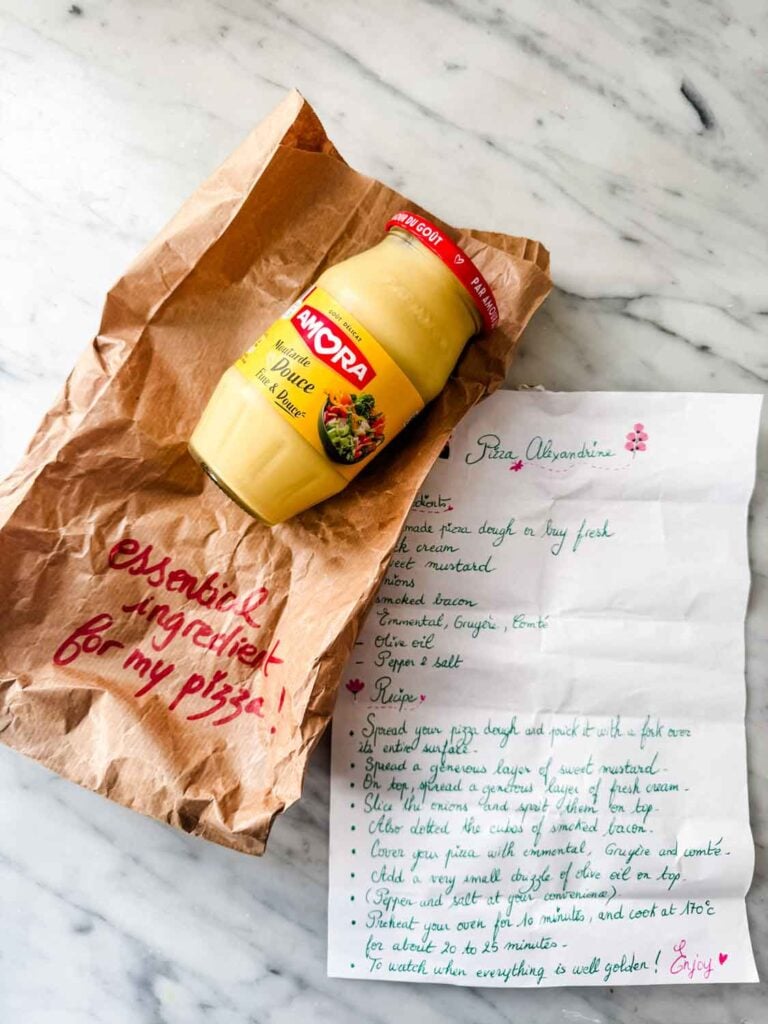 OUR DU GOÛT
PAR AMOUR
GOÛT DÉLICAT
AMORA
Moutarde
Douce
Fine & Douce
essential
ingredient
for my pizza!
Pizza Alexandrine
dients
made pizza dough or buy fresh
ck cream
weet mustard
nions
smoked bacon
Emmental, Gruyère, Comté
- Olive oil
- Pepper & salt
Recipe
• Spread your pizza dough and prick it with a fork over
its entire surface.
• Spread a generous layer of sweet mustard.
• On top, spread a generous layer of fresh cream.
• Slice the onions and spread them on top.
• Also dotted the cubes of smoked bacon.
• Cover your pizza with emmental, Gruyère and comté.
• Add a very small druzzle of olive oil on top.
• (Pepper and salt at your convenience)
• Preheat your oven for 10 minutes, and cook at 170°c
for about 20 to 25 minutes.
• To watch when everything is well golden! Enjoy